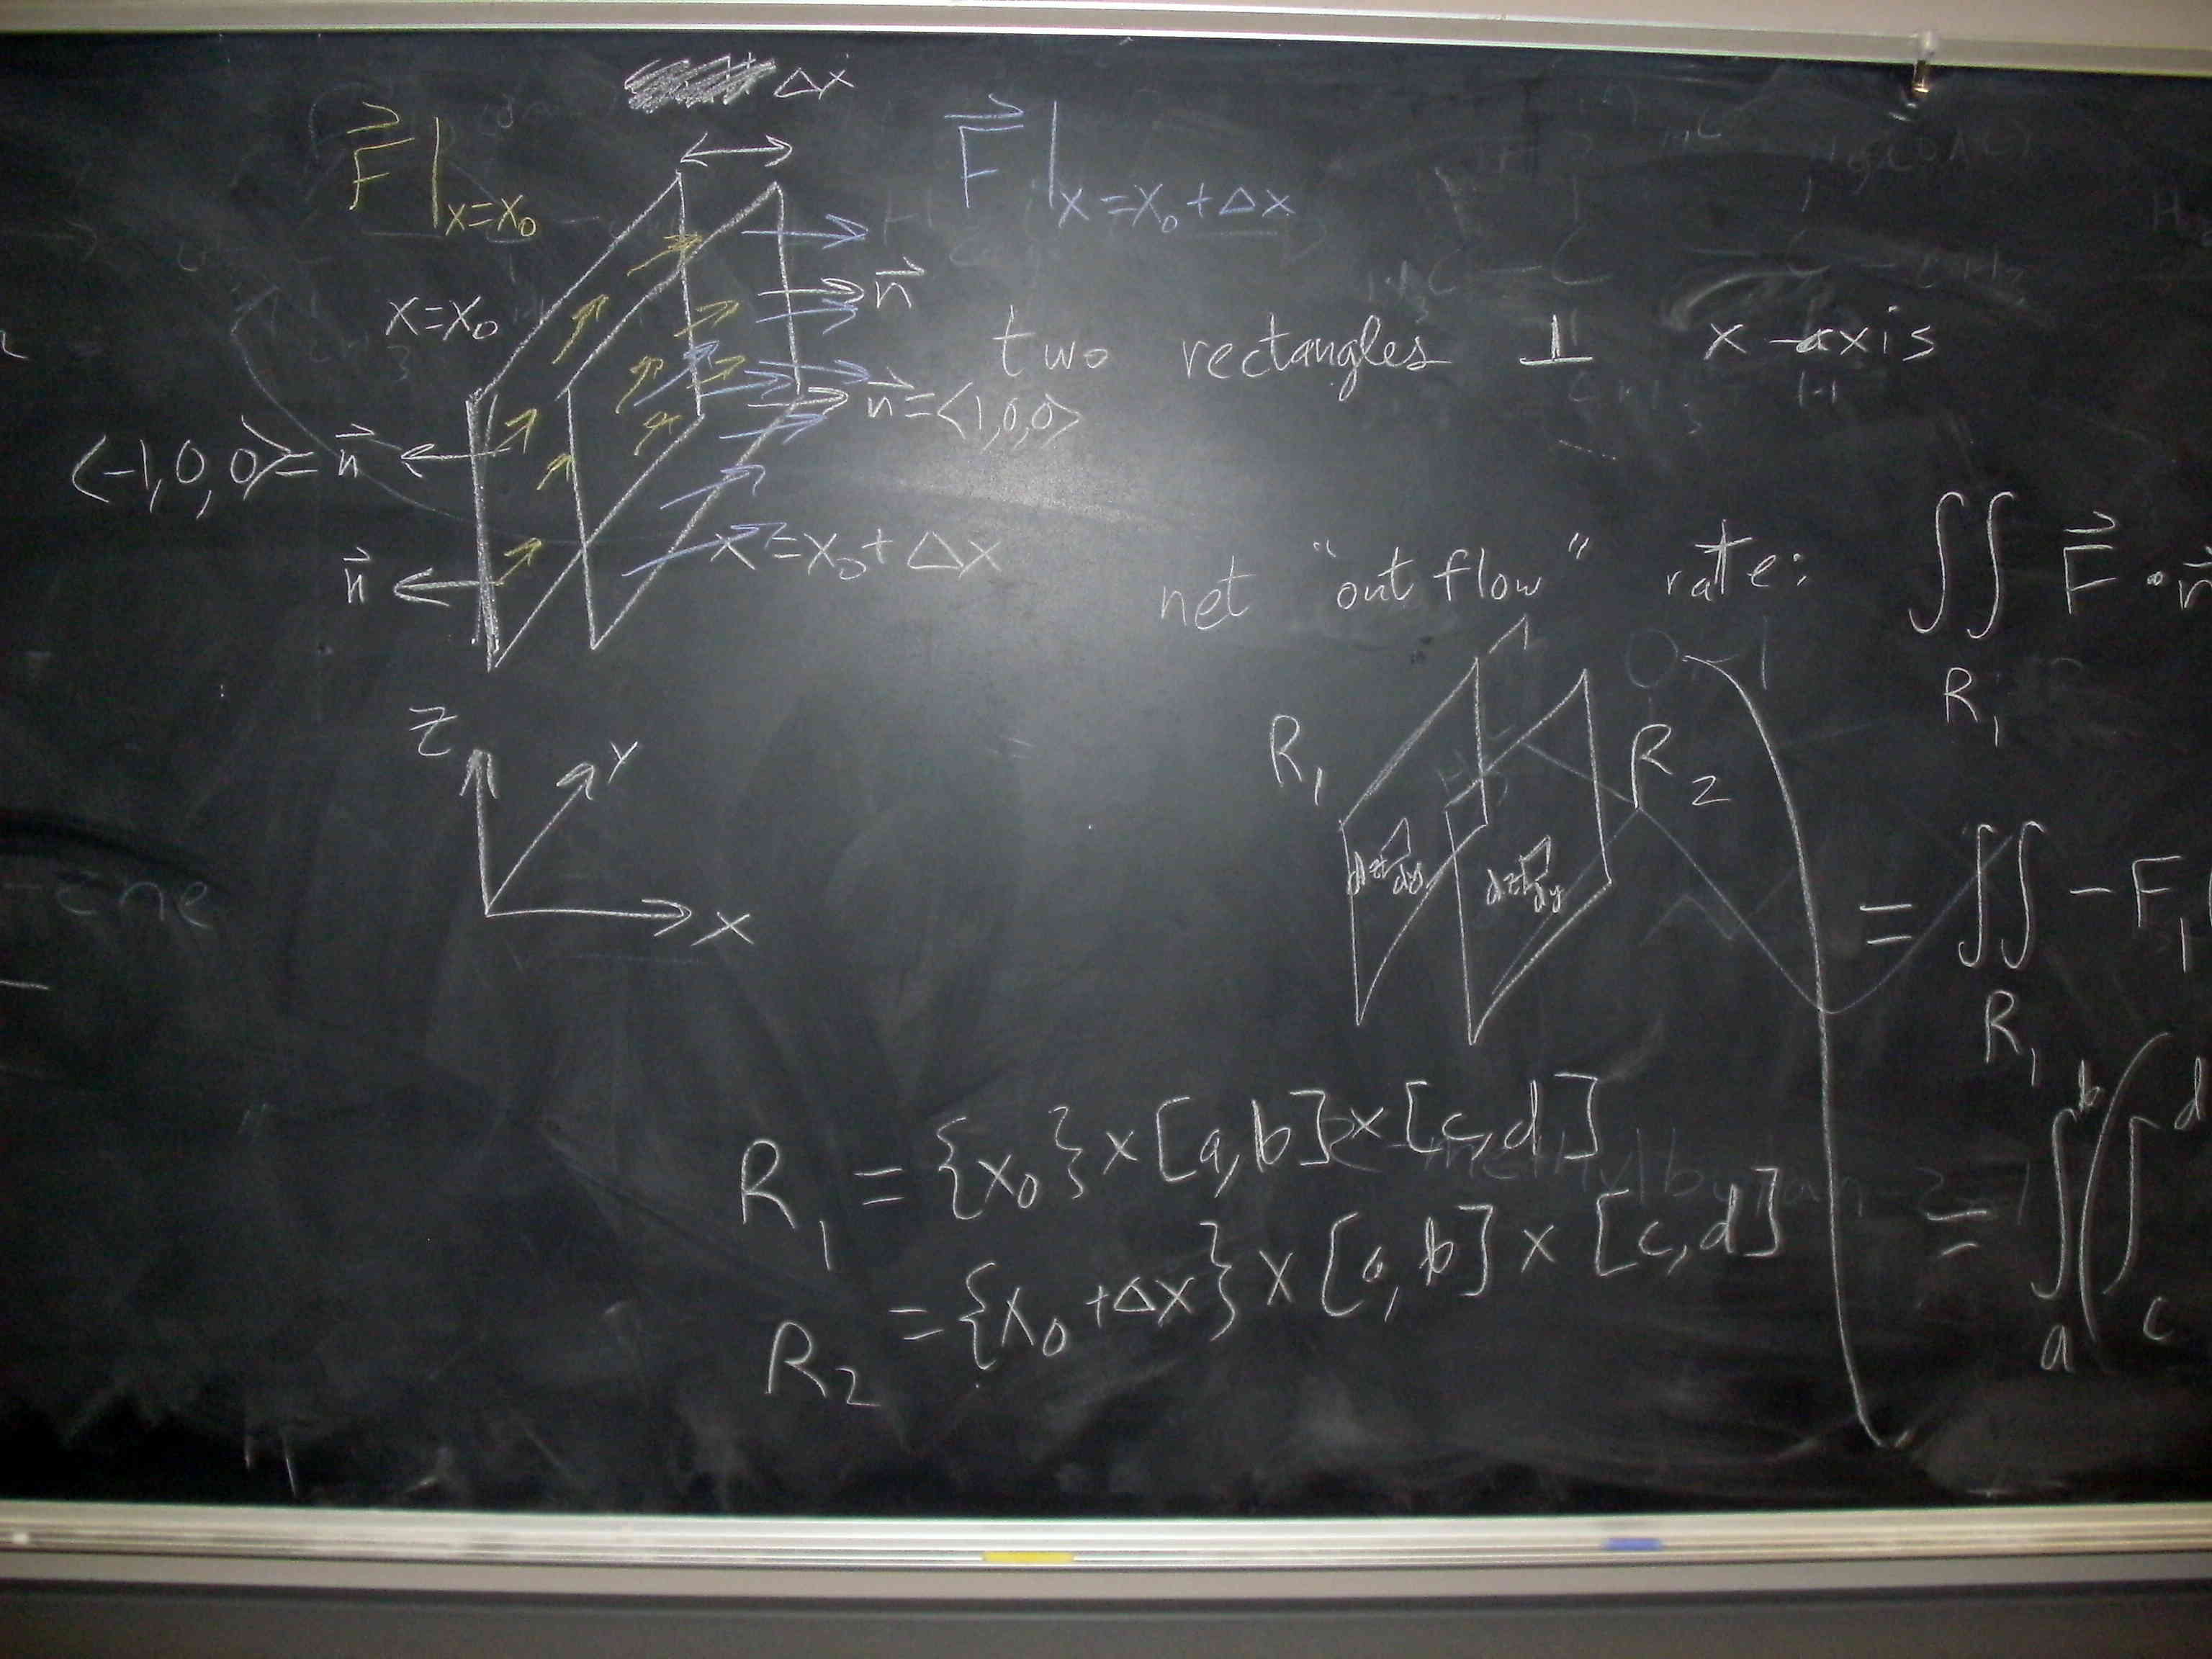 Δx
F⃗|x=x₀
F⃗|x=x₀+Δx
x=x₀
n⃗
two rectangles ⊥ x-axis
n⃗=<1,0,0>
<-1,0,0>=n⃗
x=x₀+Δx
n⃗
net "outflow" rate: ∬ F⃗·n⃗
R₁
z
y
x
R₁
R₂
dz dy
dz dy
= ∬ -F₁
R₁
R₁ = {x₀}×[a,b]×[c,d]
R₂ = {x₀+Δx}×[a,b]×[c,d]
= ∫ₐᵇ(∫
d
c